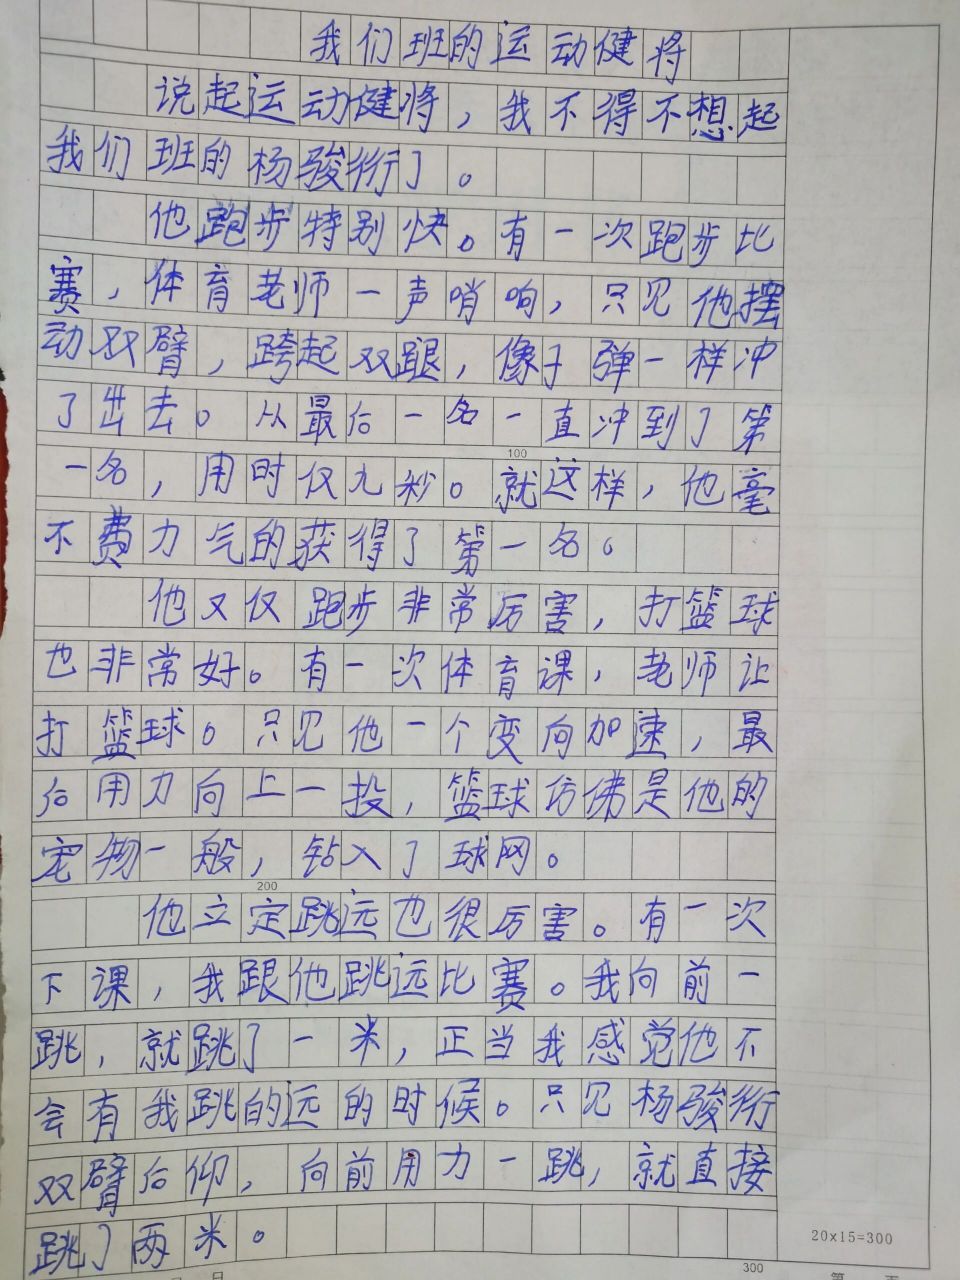 我们班的运动健将
说起运动健将，我不得不想起
我们班的杨骏衍了。
他跑步特别快。有一次跑步比
赛，体育老师一声哨响，只见他摆
动双臂，跨起双腿，像子弹一样冲
了出去。从最后一名一直冲到了第
100
一名，用时仅九秒。就这样，他毫
不费力气的获得了第一名。
他又仅跑步非常厉害，打篮球
也非常好。有一次体育课，老师让
打篮球。只见他一个变向加速，最
后用力向上一投，篮球仿佛是他的
宠物一般，钻入了球网。
200
他立定跳远也很厉害。有一次
下课，我跟他跳远比赛。我向前一
跳，就跳了一米，正当我感觉他不
会有我跳的远的时候。只见杨骏衍
双臂后仰，向前用力一跳，就直接
跳了两米。
20x15=300
300